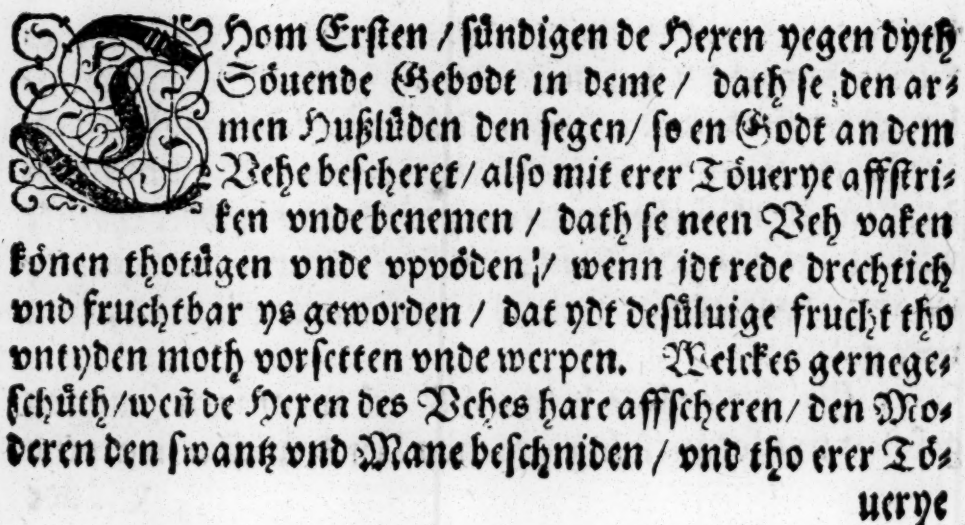 THom Ersten / sündigen de Hexen yegen dyth
Söuende Gebodt in deme / dath se den ar⸗
men Hußlüden den segen/ so en Godt an dem
Vehe bescheret/ also mit erer Töuerye affstri⸗
ken vnde benemen / dath se neen Veh vaken
können thotügen vnde vpvöden / wenn jdt rede drechtich
vnd fruchtbar ys geworden / dat ydt desüluige frucht tho
vntyden moth vorsetten vnde werpen. Welckes gernege⸗
schüth/ weñ de Hexen des Vehes hare affscheren/ den Mo⸗
deren den swantz vnd Mane beschniden / vnd tho erer Tö⸗
uerye